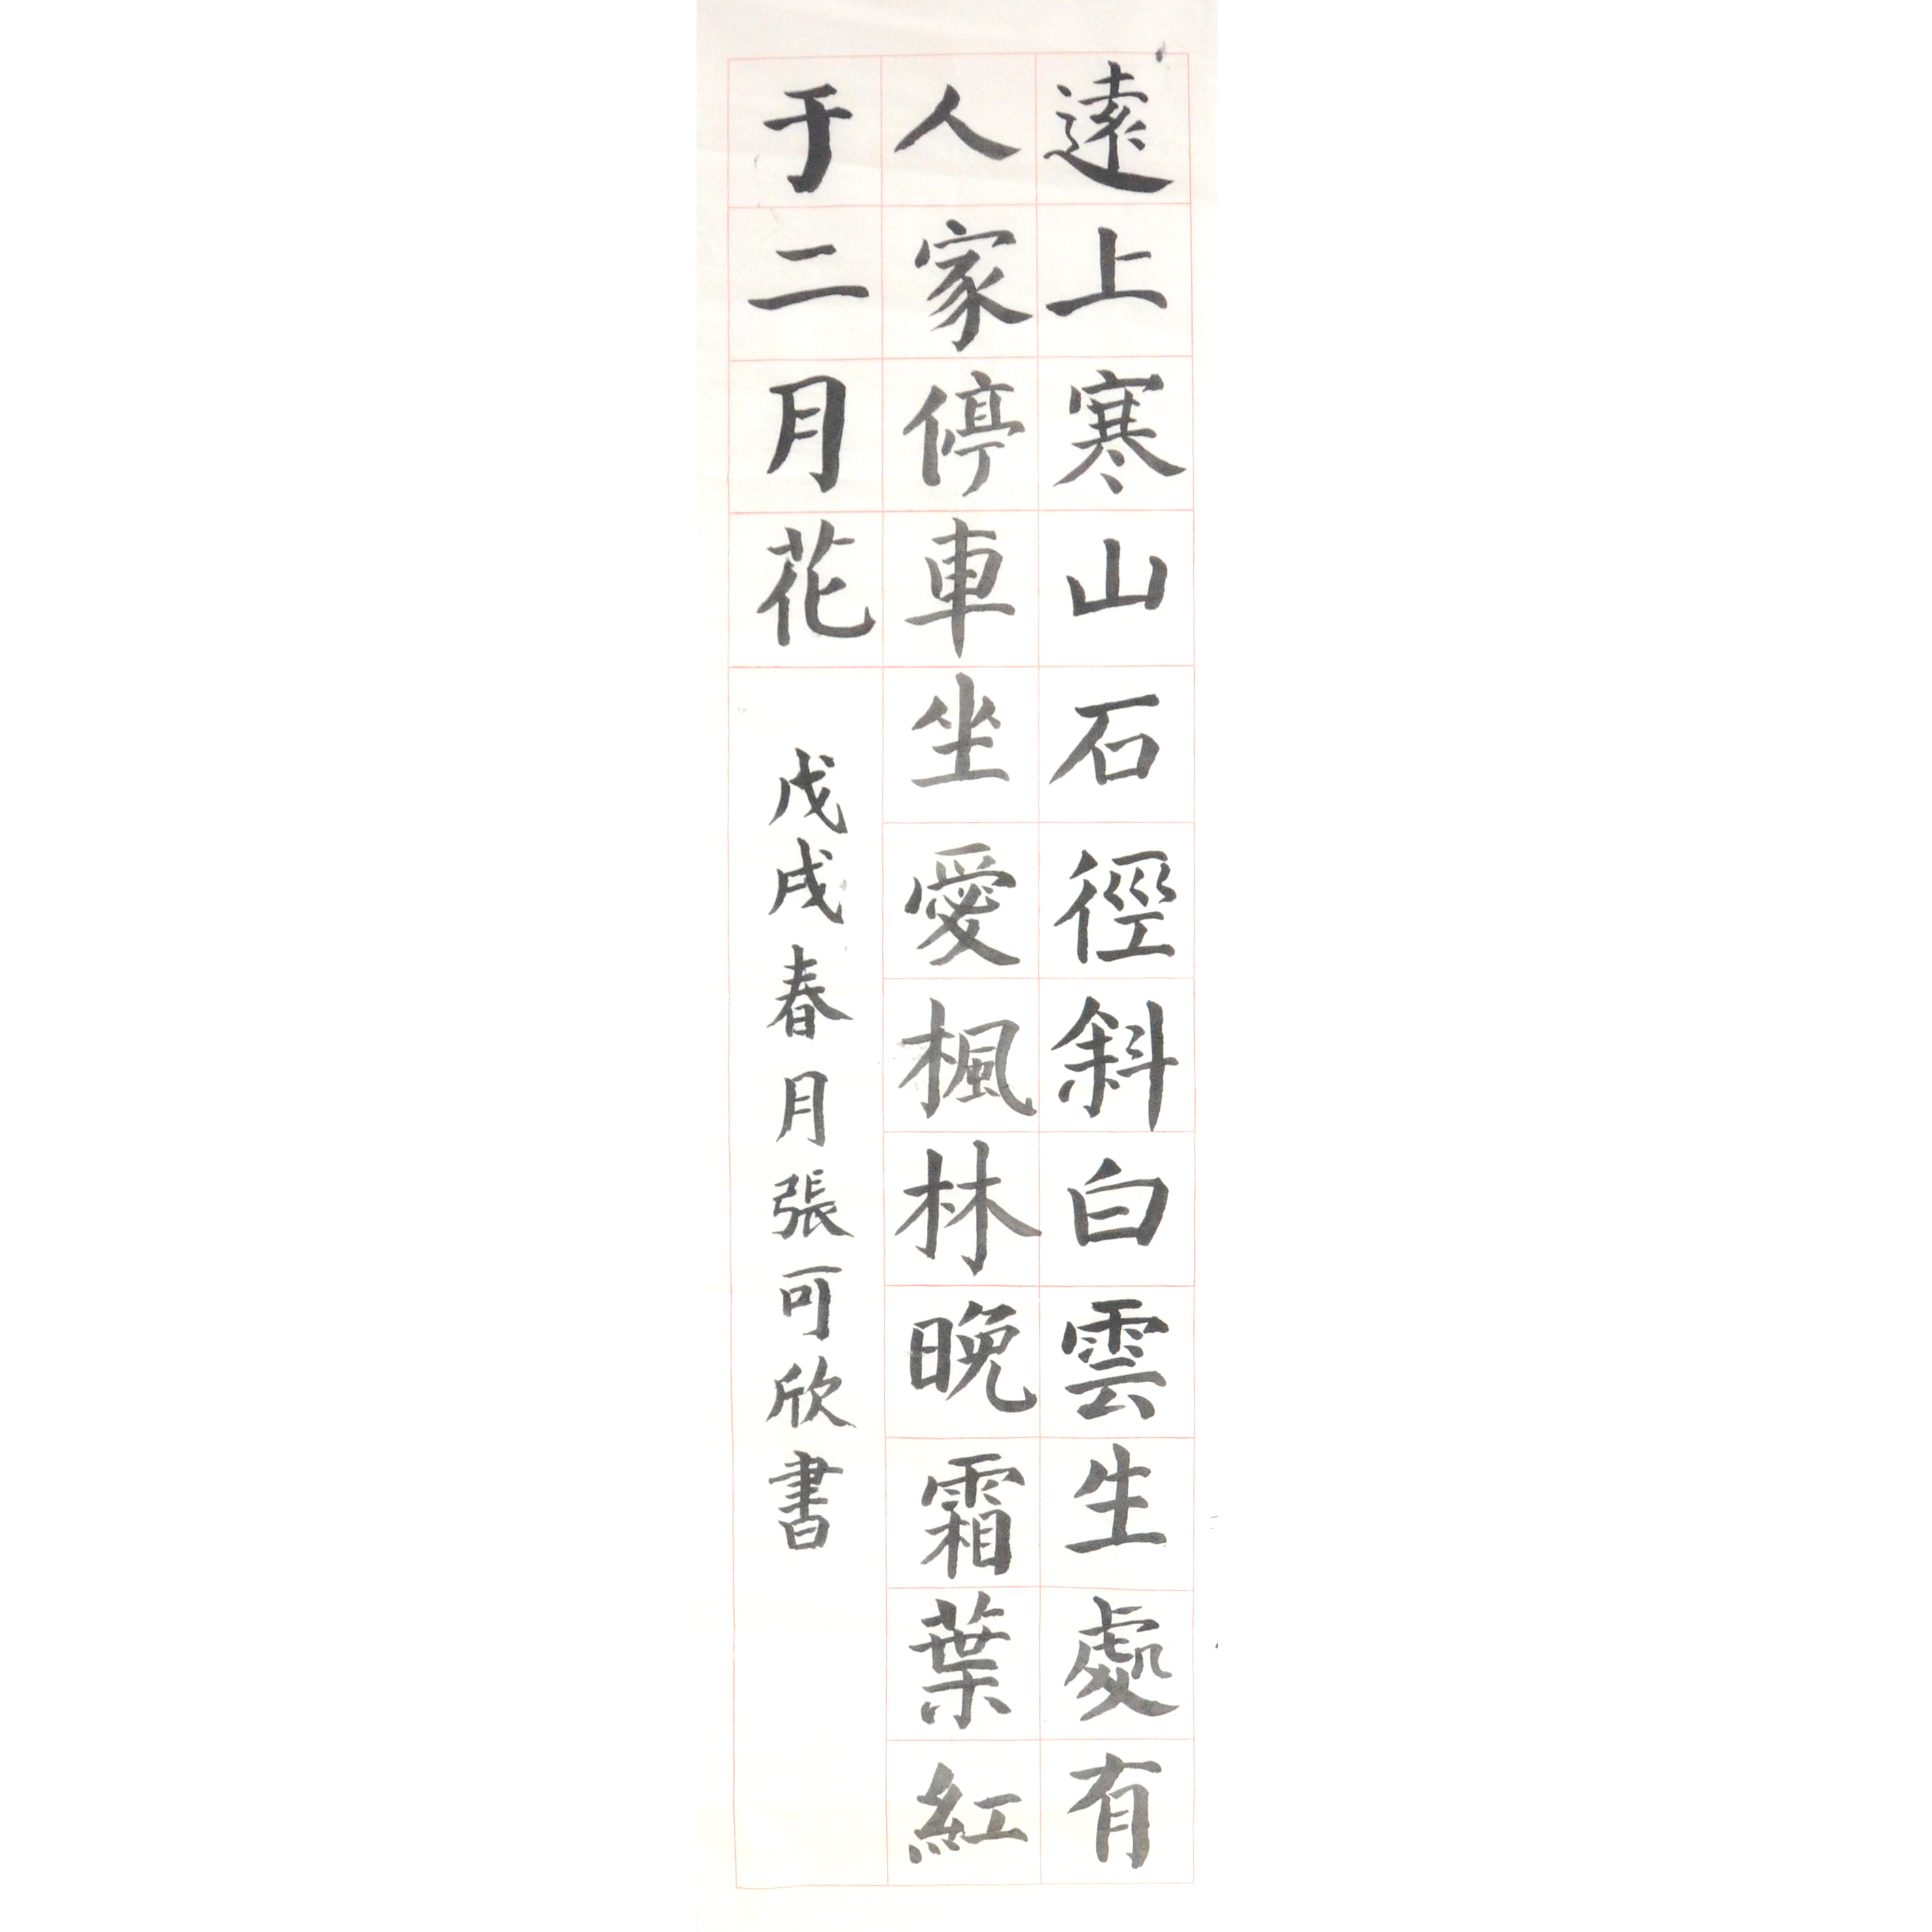 遠上寒山石徑斜白雲生處有
人家停車坐愛楓林晚霜葉紅
于二月花
戊戌春月張可欣書